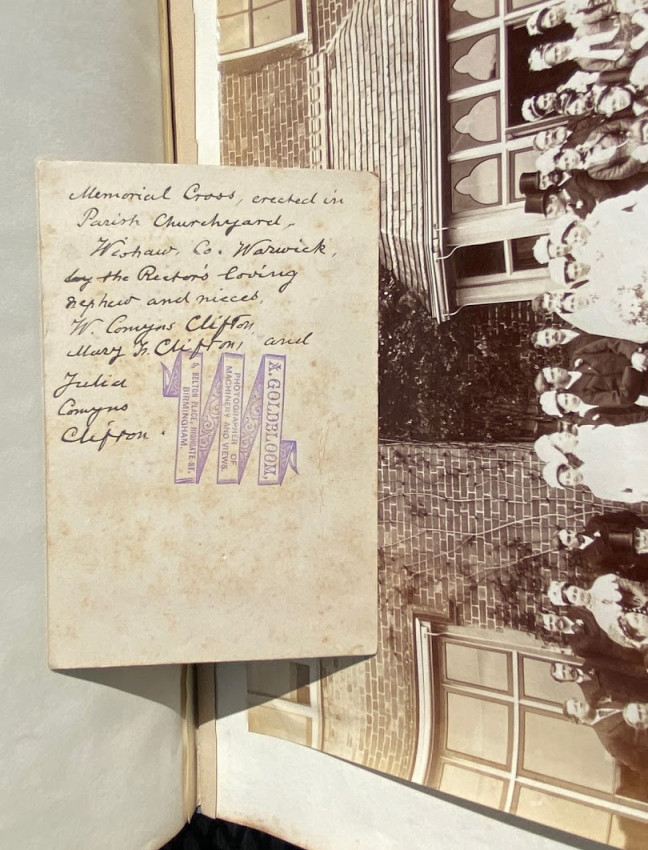 Memorial Cross, erected in
Parish Churchyard,
Wishaw, Co. Warwick,
by the Rector's loving
nephew and nieces,
W. Comyns Clifton,
Mary H. Clifton, and
Julia
Comyns
Clifton.
A. GOLDBLOOM,
PHOTOGRAPHER OF
MACHINERY AND VIEWS.
BELTON PLACE, HIGHGATE ST,
BIRMINGHAM.